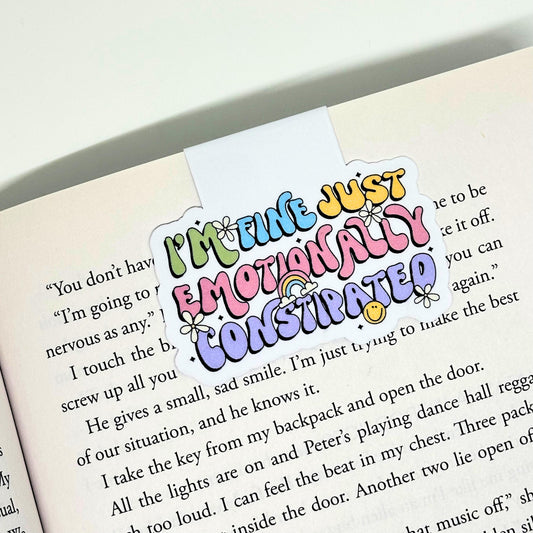 I'M FINE JUST
EMOTIONALLY
CONSTIPATED
"You don't have
me to be
"I'm going to
ke it off.
nervous as any."
you can
I touch the b
again."
screw up all you
make the best
He gives a small, sad smile. I'm just trying to
of our situation, and he knows it.
I take the key from my backpack and open the door.
All the lights are on and Peter's playing dance hall regga
ch too loud. I can feel the beat in my chest. Three pack
inside the door. Another two lie open of
hat music off," sh
My
ual,